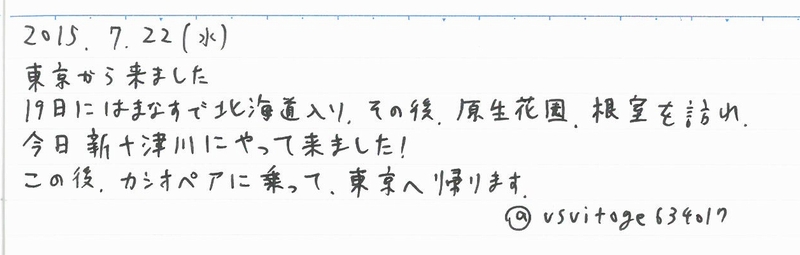 2015. 7. 22 (水)
東京から来ました
19日にはまなすで北海道入り. その後. 原生花園. 根室を訪れ.
今日 新十津川にやって来ました!
この後. カシオペアに乗って. 東京へ帰ります.
@usuitoge634017